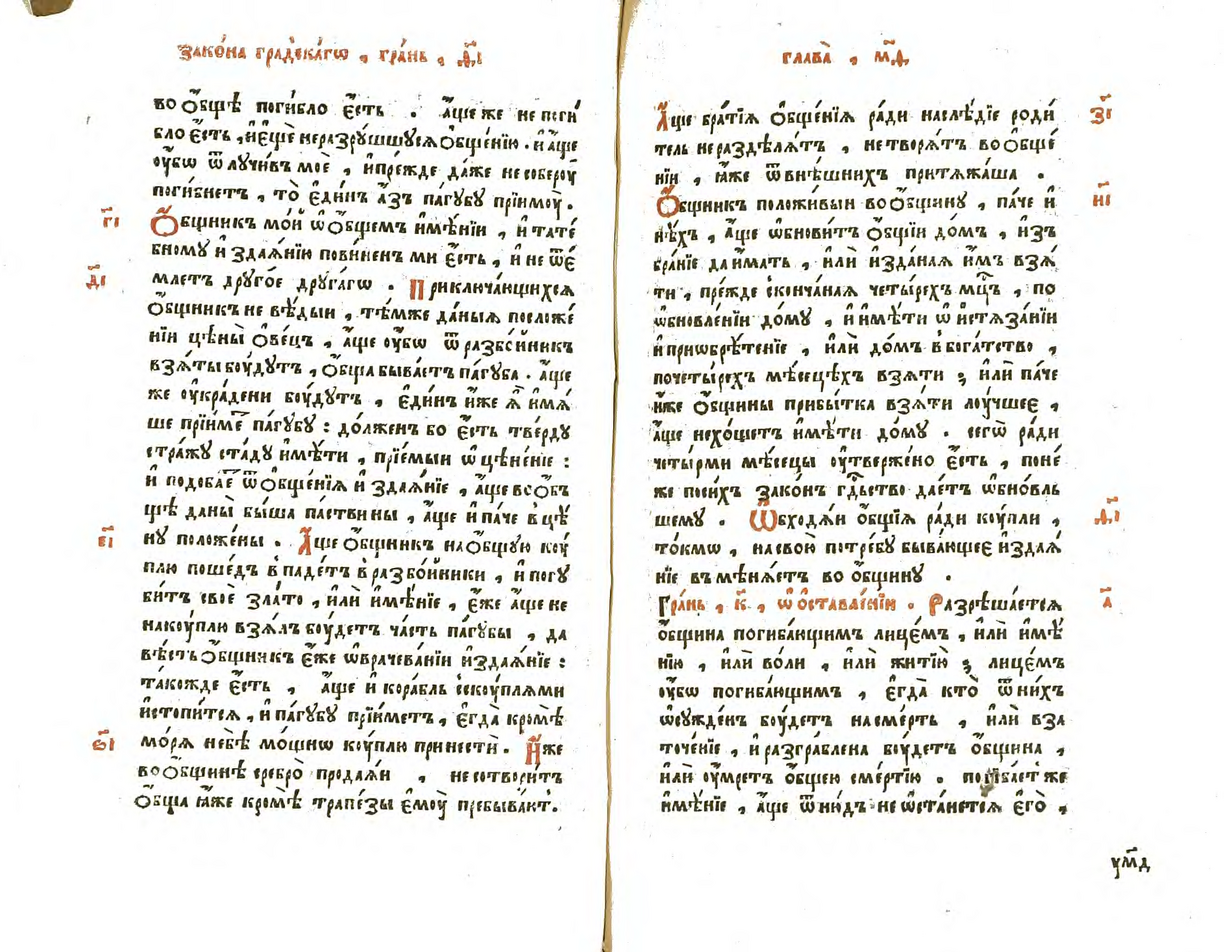 Зако́на гра́дскагѡ , гра́нь , д҃і
во ѻ҆́бщѣ поги́бло є҆́сть . а҆́ще же не поги́
бло є҆́сть , и҆ є҆щѐ не разрꙋ́шшꙋсѧ ѻ҆бще́нїю . и҆ а҆́ще
ᲂу҆́бѡ ѿлꙋчи́въ моѐ , и҆ пре́жде да́же не соберᲂу̀
поги́бнетъ , то̀ є҆ди́нъ а҆́зъ па́гꙋбꙋ прїимᲂу̀ .
г҃і
Ѻ҆́бщникъ мо́й ѡ҆ ѻ҆́бщемъ и҆мѣ́нїи , и҆ татѐ
бномꙋ и҆ здаѧ́нїю пови́ненъ ми є҆́сть , и҆ не ѿе́
д҃і
млетъ дрꙋго́е дрꙋга́гѡ . Приключа́ющихсѧ
ѻ҆́бщникъ не вѣ́дыи , тѣ́мже да́ныѧ посложе́
нїи цѣны̀ ѻ҆ве́цъ , а҆́ще ᲂу҆́бѡ ѿ разбо́йникъ
взѧ́ты бᲂу́дꙋтъ , ѻ҆́бща быва́етъ па́гꙋба . а҆́ще
же ᲂу҆кра́дени бᲂу́дꙋтъ , є҆ди́нъ и҆́же ѧ҆̀ и҆мѧ́
ше прїи́ме па́гꙋбꙋ : до́лженъ бо є҆́сть тве́рдꙋ
стра́жꙋ ста́дꙋ и҆мѣ́ти , прїе́мыи ѡ҆цѣне́нїе :
и҆ подоба́е ѿ ѻ҆бще́нїѧ и҆ здаѧ́нїе , а҆́ще во ѻ҆́б
щѣ даны̀ бы́ша па́ствины , а҆́ще и҆ па́че в цѣ́
е҃і
нꙋ поло́жены . А҆́ще ѻ҆́бщникъ на ѻ҆́бщꙋю кᲂу́
плю поше́дъ впаде́тъ в разбо́йники , и҆ погꙋ
би́тъ своѐ зла́то , и҆лѝ и҆мѣ́нїе , є҆́же а҆́ще не
на кᲂу́плю взѧ́лъ бᲂу́детъ ча́сть па́гꙋбы , да
вѣ́сть ѻ҆́бщникъ є҆́же ѡ҆ врачева́нїи и҆здаѧ́нїе :
та́кожде є҆́сть , а҆́ще и҆ кора́бль с кᲂу́плѧми
и҆сто́питсѧ , и҆ па́гꙋбꙋ прїи́метъ , є҆гда̀ кро́мѣ
ѕ҃і
мо́рѧ не бѣ̀ мо́щнѡ кᲂу́плю принестѝ . И҆́же
во ѻ҆́бщинѣ сребро̀ продаѧ́и , не сотвори́тъ
ѻ҆́бща ꙗ҆́же кро́мѣ трапе́зы є҆мᲂу̀ пребыва́ют .
глава̀ , м҃ѳ
з҃і
А҆́ще бра́тїѧ ѻ҆бще́нїѧ ра́ди наслѣ́дїе роди́
тель не раздѣлѧ́тъ , не творѧ́тъ во ѻ҆бще́
нїи , ꙗ҆́же ѿ внѣ́шнихъ притѧжа́ша .
и҃і
Ѻ҆́бщникъ положи́выи во ѻ҆́бщинꙋ , па́че и҆
нѣ́хъ , а҆́ще ѡ҆бнови́тъ ѻ҆́бщїи до́мъ , и҆зъ
бра́нїе да и҆́мать , и҆лѝ и҆зда́наѧ и҆́мъ взѧ́
ти , пре́жде сконча́наѧ четы́рехъ мц҃ъ , по
ѡ҆бновле́нїи до́мꙋ , и҆ и҆мѣ́ти ѡ҆ и҆стѧза́нїи
и҆ приѡбрѣ́тенїе , и҆лѝ до́мъ в бога́тство ,
по четы́рехъ мѣ́сецѣхъ взѧ́ти ; и҆лѝ па́че
и҆́же ѻ҆́бщины прибы́тка взѧ́ти лᲂу́чшее ,
а҆́ще не хо́щетъ и҆мѣ́ти до́мꙋ . сегѡ̀ ра́ди
четы́рми мѣ́сецы ᲂу҆тве́ржено є҆́сть , поне́
же по си́хъ зако́нъ гдⷭ҇ьство дае́тъ ѡ҆бно́вль
ѳ҃і
шемꙋ . Ѡ҆бходѧ́и ѻ҆́бщїѧ ра́ди кᲂу́пли ,
то́кмѡ , на свою̀ потре́бꙋ быва́ющее и҆здаѧ́
нїе въмѣнѧ́етъ во ѻ҆́бщинꙋ .
а҃
Гра́нь , к҃ , ѡ҆ ѡ҆ставле́нїи . Разрѣша́етсѧ
ѻ҆́бщина погиба́ющимъ лице́мъ , и҆лѝ и҆мѣ́
нїю , и҆лѝ во́ли , и҆лѝ житїю̀ ; лице́мъ
ᲂу҆́бѡ погиба́ющимъ , є҆гда̀ кто̀ ѿ ни́хъ
ѡ҆сꙋжде́нъ бᲂу́детъ на сме́рть , и҆лѝ в за
точе́нїе , и҆ разгра́блена бᲂу́детъ ѻ҆́бщина ,
и҆лѝ ᲂу҆́мретъ ѻ҆́бщею сме́ртїю . погиба́ет же
и҆мѣ́нїе , а҆́ще ѿ ни́хъ не ѡ҆ста́нетсѧ є҆гѡ̀ ,
ум҃д